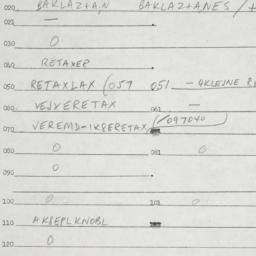 020 BAKLAZ+A,N BAKLAZ+ANES /+
021 —
030 0
040 RETAXEP
050 RETAXLAX (057 051 — 4KLEJNE
060 VEJVERETAX 061 —
070 VEREMD-1K8ERETAX (/097040)
080 0 081 0
090 0
100 0 101 0
110 AK8EPLKNOBL
120 0